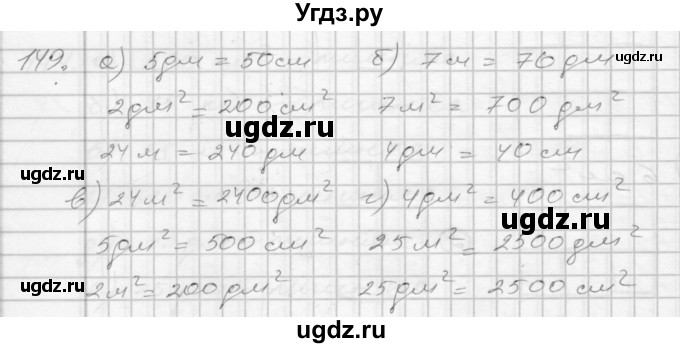 Угдз.ру
149. а) 5дм = 50см б) 7м = 70дм
2дм² = 200см² 7м² = 700дм²
ugdz.ru
24м = 240дм 4дм = 40см
ugdz.ru ugdz.ru
в) 24м² = 2400дм² г) 4дм² = 400см²
5дм² = 500см² 25м² = 2500дм²
ugdz.ru ugdz.ru
2м² = 200дм² 25дм² = 2500см²
ugdz.ru